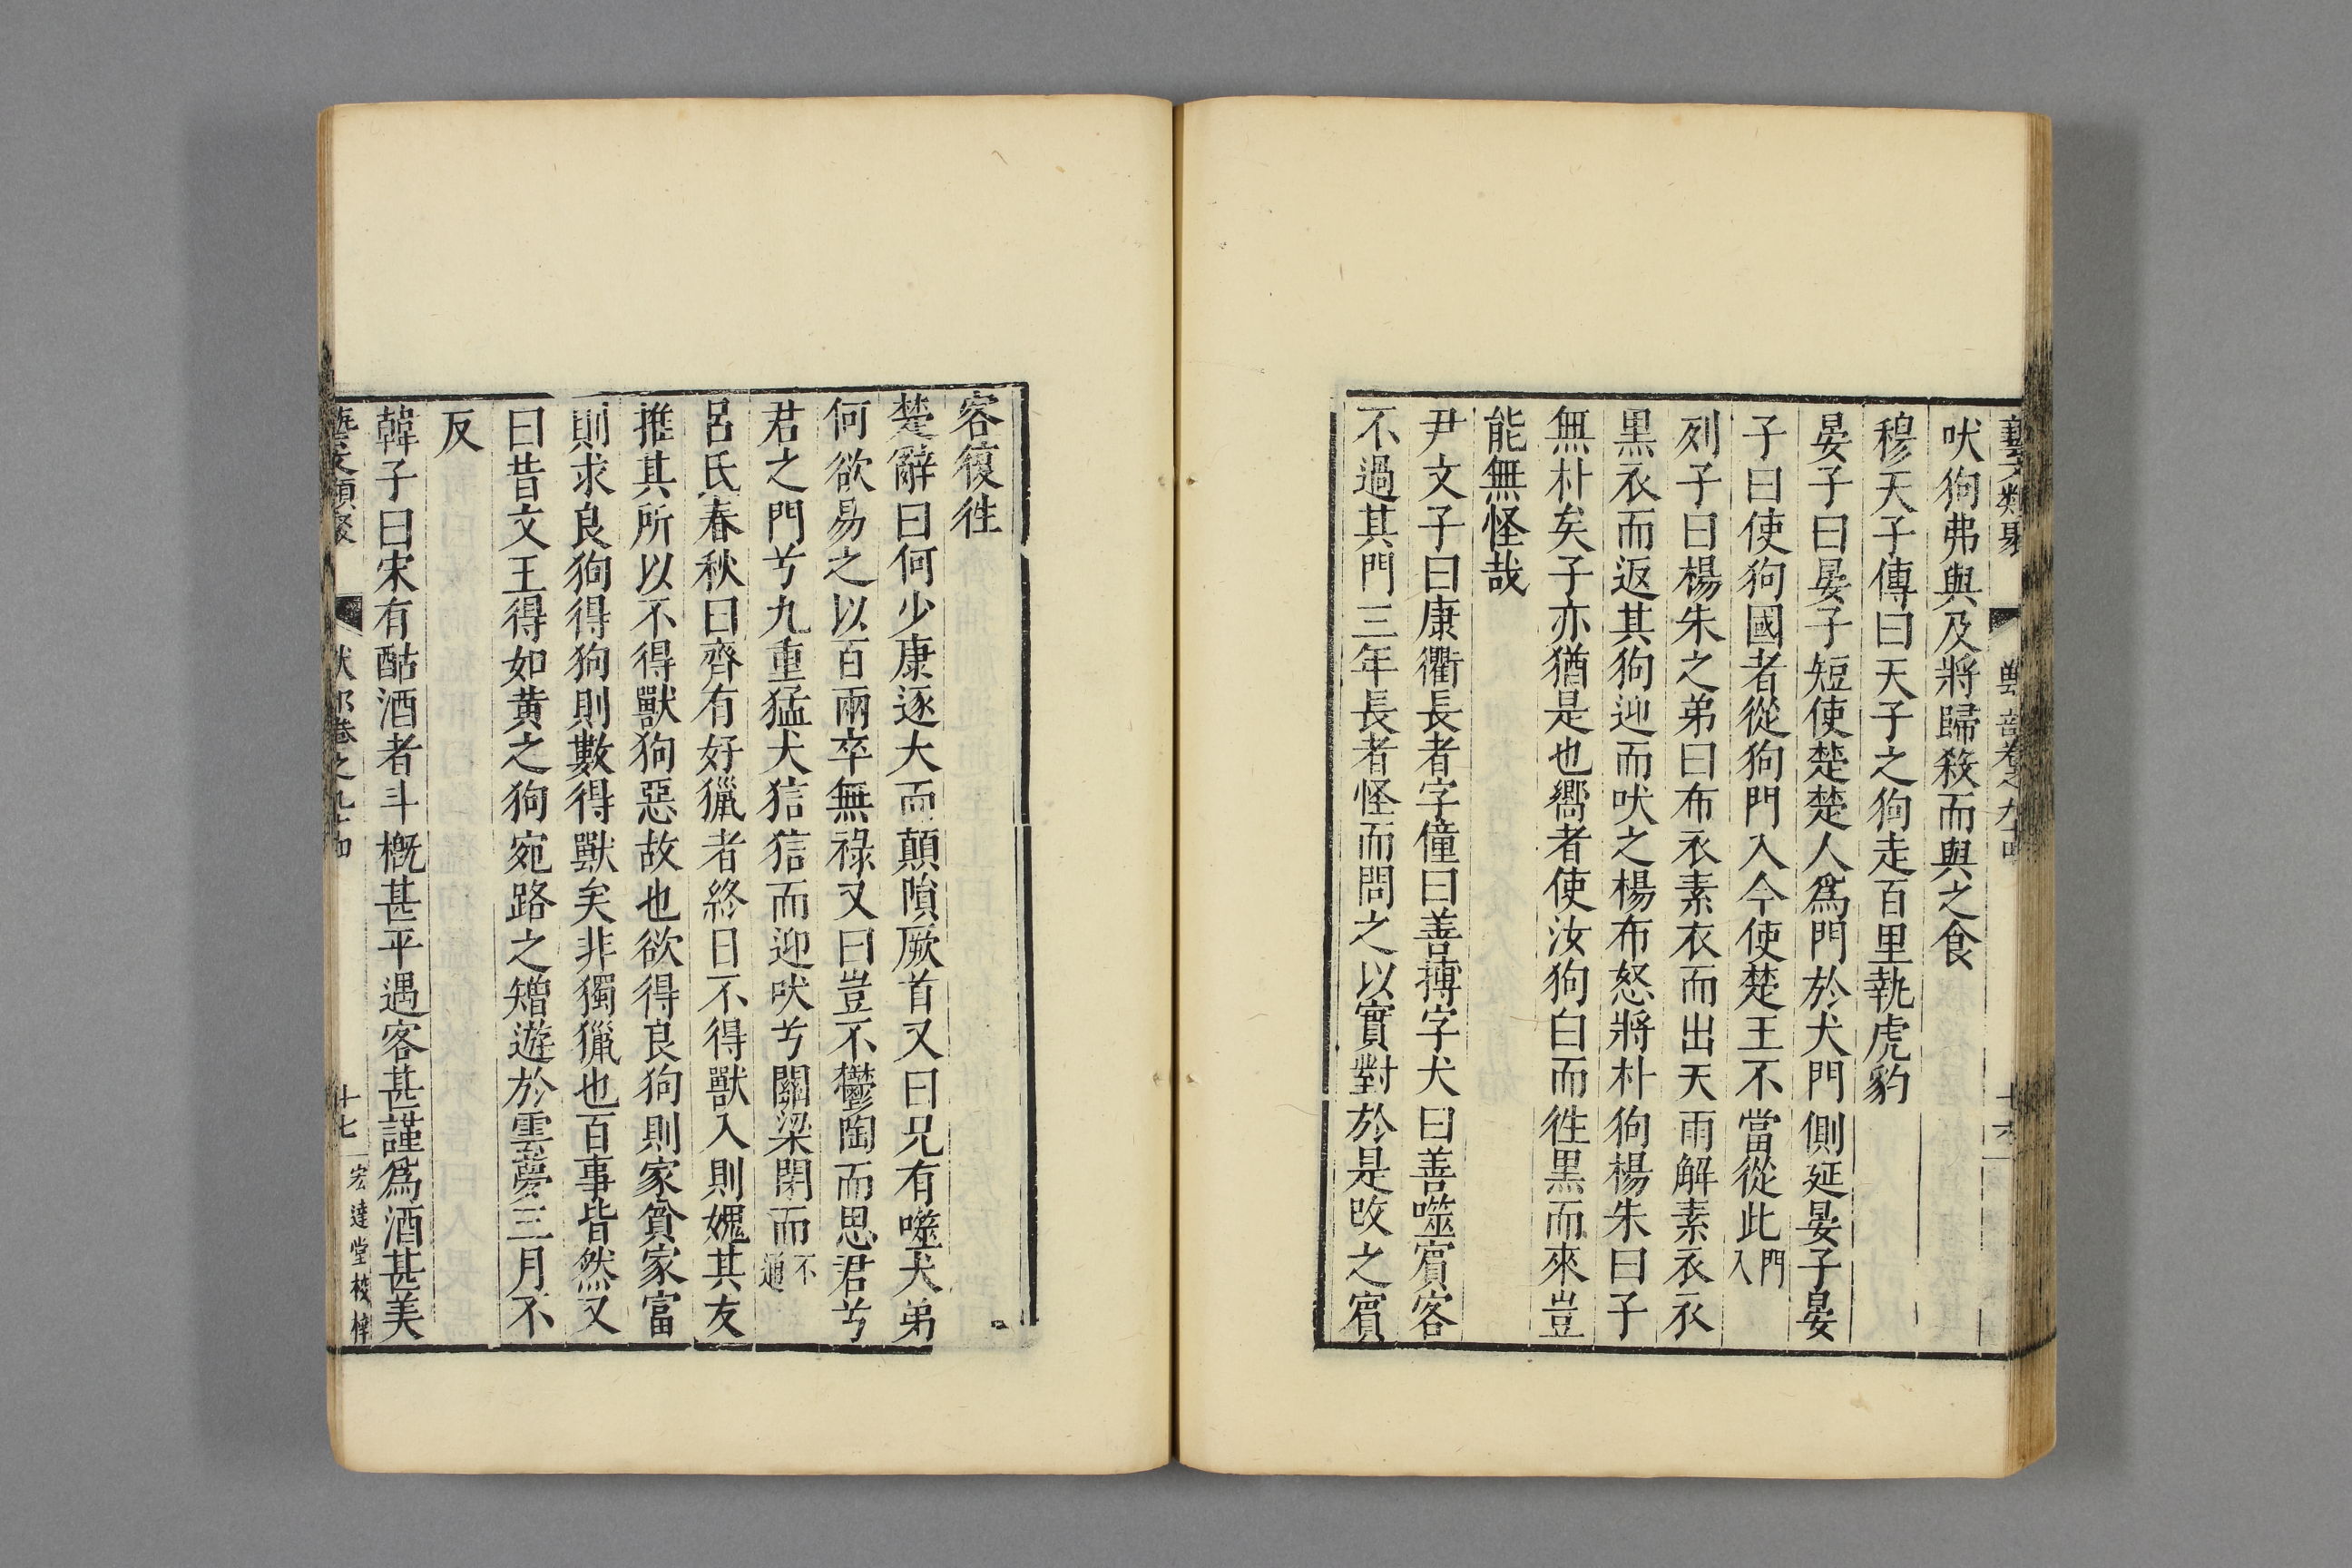 藝文類聚 獸部卷之九十四 十六
吠狗弗與及將歸殺而與之食
穆天子傳曰天子之狗走百里執虎豹
晏子曰晏子短使楚楚人爲門於犬門側延晏子晏
子曰使狗國者從狗門入今使楚王不當從此門入
列子曰楊朱之弟曰布衣素衣而出天雨解素衣衣
黒衣而返其狗迎而吠之楊布怒將朴狗楊朱曰子
無朴矣子亦猶是也嚮者使汝狗白而徃黒而來豈
能無怪哉
尹文子曰康衢長者字僮曰善搏字犬曰善噬賔客
不過其門三年長者怪而問之以實對於是改之賔
客復徃
楚辭曰何少康逐犬而顛隕厥首又曰兄有噬犬弟
何欲易之以百兩卒無祿又曰豈不鬱陶而思君兮
君之門兮九重猛犬狺狺而迎吠兮關梁閉而不通
呂氏春秋曰齊有好獵者終日不得獸入則媿其友
推其所以不得獸狗惡故也欲得良狗則家貧家富
則求良狗得狗則數得獸矣非獨獵也百事皆然又
曰昔文王得如黃之狗宛路之矰遊於雲夢三月不
反
韓子曰宋有酤酒者斗槪甚平遇客甚謹爲酒甚美
藝文類聚 獸部卷之九十四 十七 宏達堂校梓